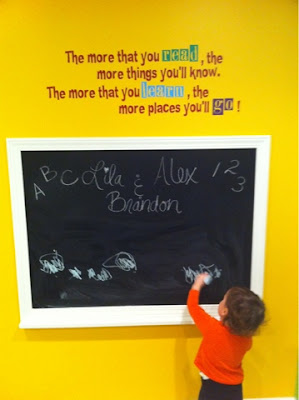 The more that you read, the
more things you'll know.
The more that you learn, the
more places you'll go!
A B C Lila & Alex 1 2 3
Brandon